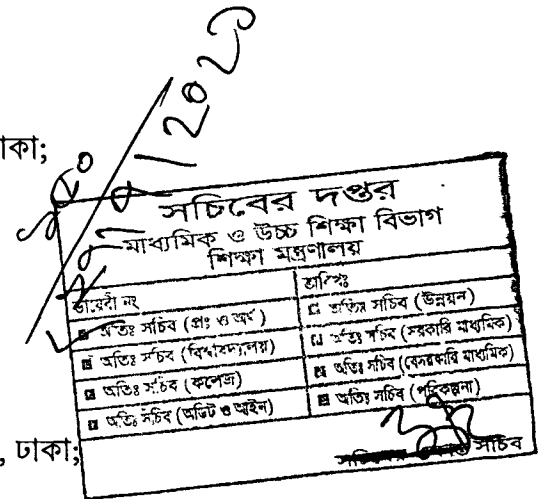 াকা;
সচিবের দপ্তর
মাধ্যমিক ও উচ্চ শিক্ষা বিভাগ
শিক্ষা মন্ত্রণালয়
ডায়েরী নং তারিখঃ
অতিঃ সচিব (প্রঃ ও অর্থ) অতিঃ সচিব (উন্নয়ন)
অতিঃ সচিব (বিশ্ববিদ্যালয়) অতিঃ সচিব (সরকারি মাধ্যমিক)
অতিঃ সচিব (কলেজ) অতিঃ সচিব (বেসরকারি মাধ্যমিক)
অতিঃ সচিব (অডিট ও আইন) অতিঃ সচিব (পরিকল্পনা)
সচিব
, ঢাকা;